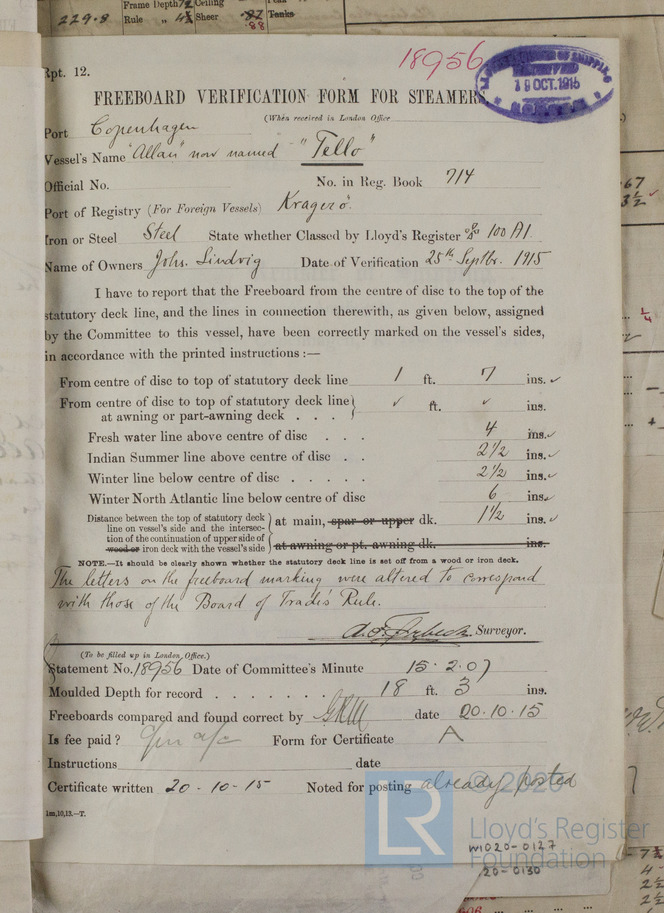 229.8
Frame Depth 7½ Ceiling
Rule " 4½ Sheer .82
.88 Tanks
18956
Rpt. 12.
18 OCT. 1915
FREEBOARD VERIFICATION FORM FOR STEAMERS.
(When received in London Office
Port Copenhagen
Vessel's Name "Allan" now named "Tello"
Official No. No. in Reg. Book 714
Port of Registry (For Foreign Vessels) Kragerö
Iron or Steel Steel State whether Classed by Lloyd's Register 100 A1
Name of Owners Johs. Lindvig Date of Verification 25th Septbr. 1915
I have to report that the Freeboard from the centre of disc to the top of the
statutory deck line, and the lines in connection therewith, as given below, assigned
by the Committee to this vessel, have been correctly marked on the vessel's sides,
in accordance with the printed instructions :—
From centre of disc to top of statutory deck line 1 ft. 7 ins. ✓
From centre of disc to top of statutory deck line
at awning or part-awning deck . . . ✓ ft. ✓ ins.
Fresh water line above centre of disc . . . 4 ins. ✓
Indian Summer line above centre of disc . . 2½ ins. ✓
Winter line below centre of disc . . . . . 2½ ins. ✓
Winter North Atlantic line below centre of disc 6 ins. ✓
Distance between the top of statutory deck
line on vessel's side and the intersec-
tion of the continuation of upper side of
wood or iron deck with the vessel's side
at main, spar or upper dk. 1½ ins. ✓
at awning or pt. awning dk. ins.
NOTE.—It should be clearly shown whether the statutory deck line is set off from a wood or iron deck.
The letters on the freeboard marking were altered to correspond
with those of the Board of Trade's Rule.
Surveyor.
(To be filled up in London Office.)
Statement No. 18956 Date of Committee's Minute 15.2.07
Moulded Depth for record . . . . . . . 18 ft. 3 ins.
Freeboards compared and found correct by date 20.10.15
Is fee paid? a/c Form for Certificate A
Instructions date
Certificate written 20-10-15 Noted for posting already posted
1m,10,13.—T.
LR
© 2020
Lloyd's Register
Foundation
W1020-0127
20-0130